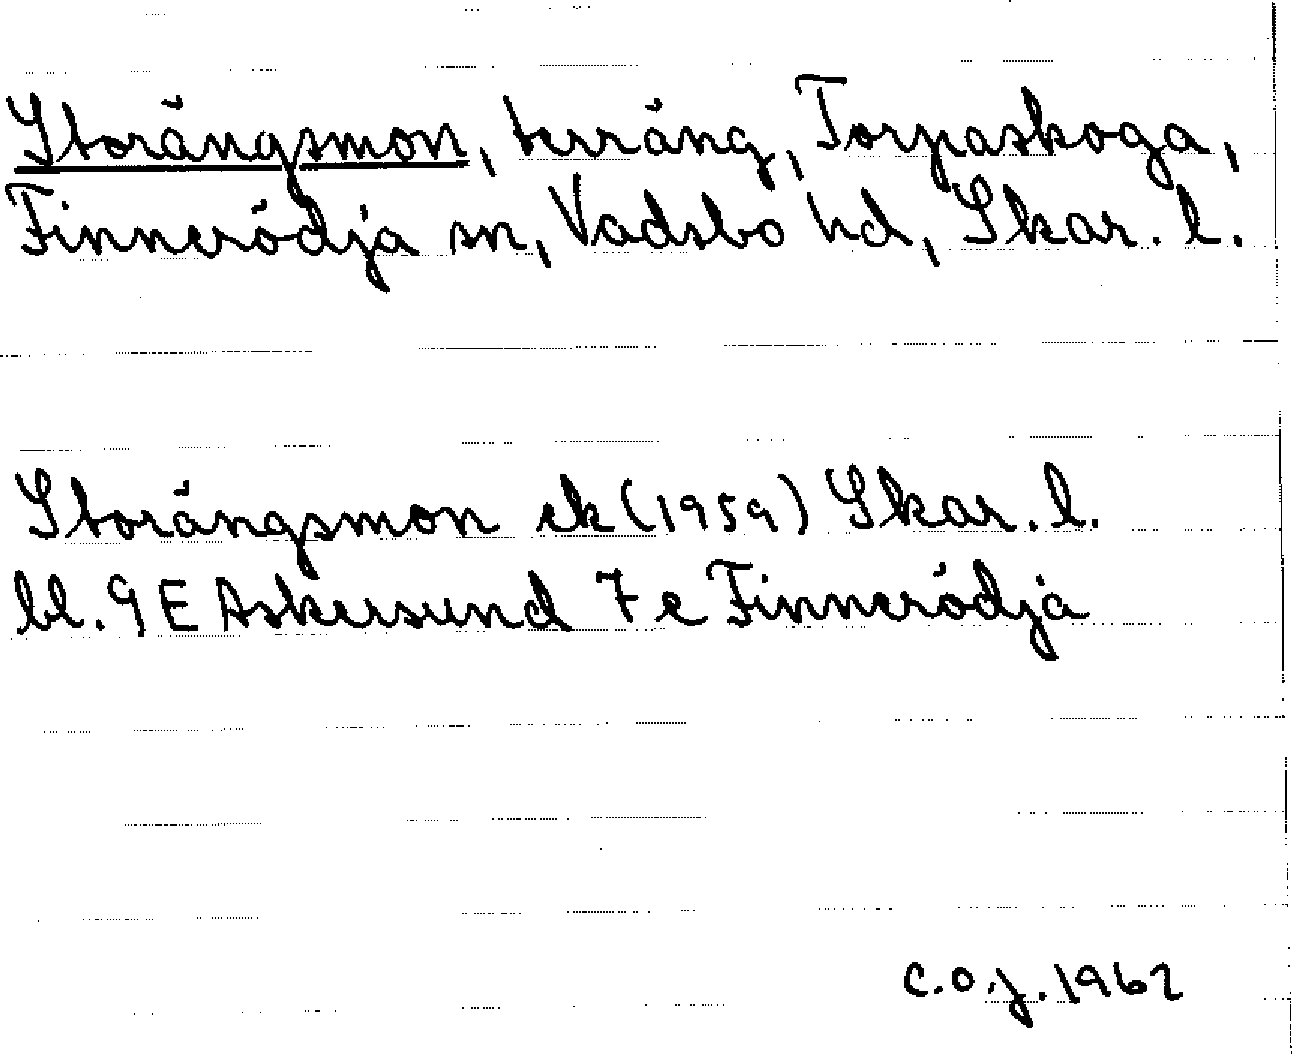 Storängsmon, terräng, Torpaskoga,
Finnerödja sn, Vadsbo hd, Skar. l.
Storängsmon ek (1959) Skar. l.
bl. 9 E Askersund 7 e Finnerödja
C.O.J. 1962